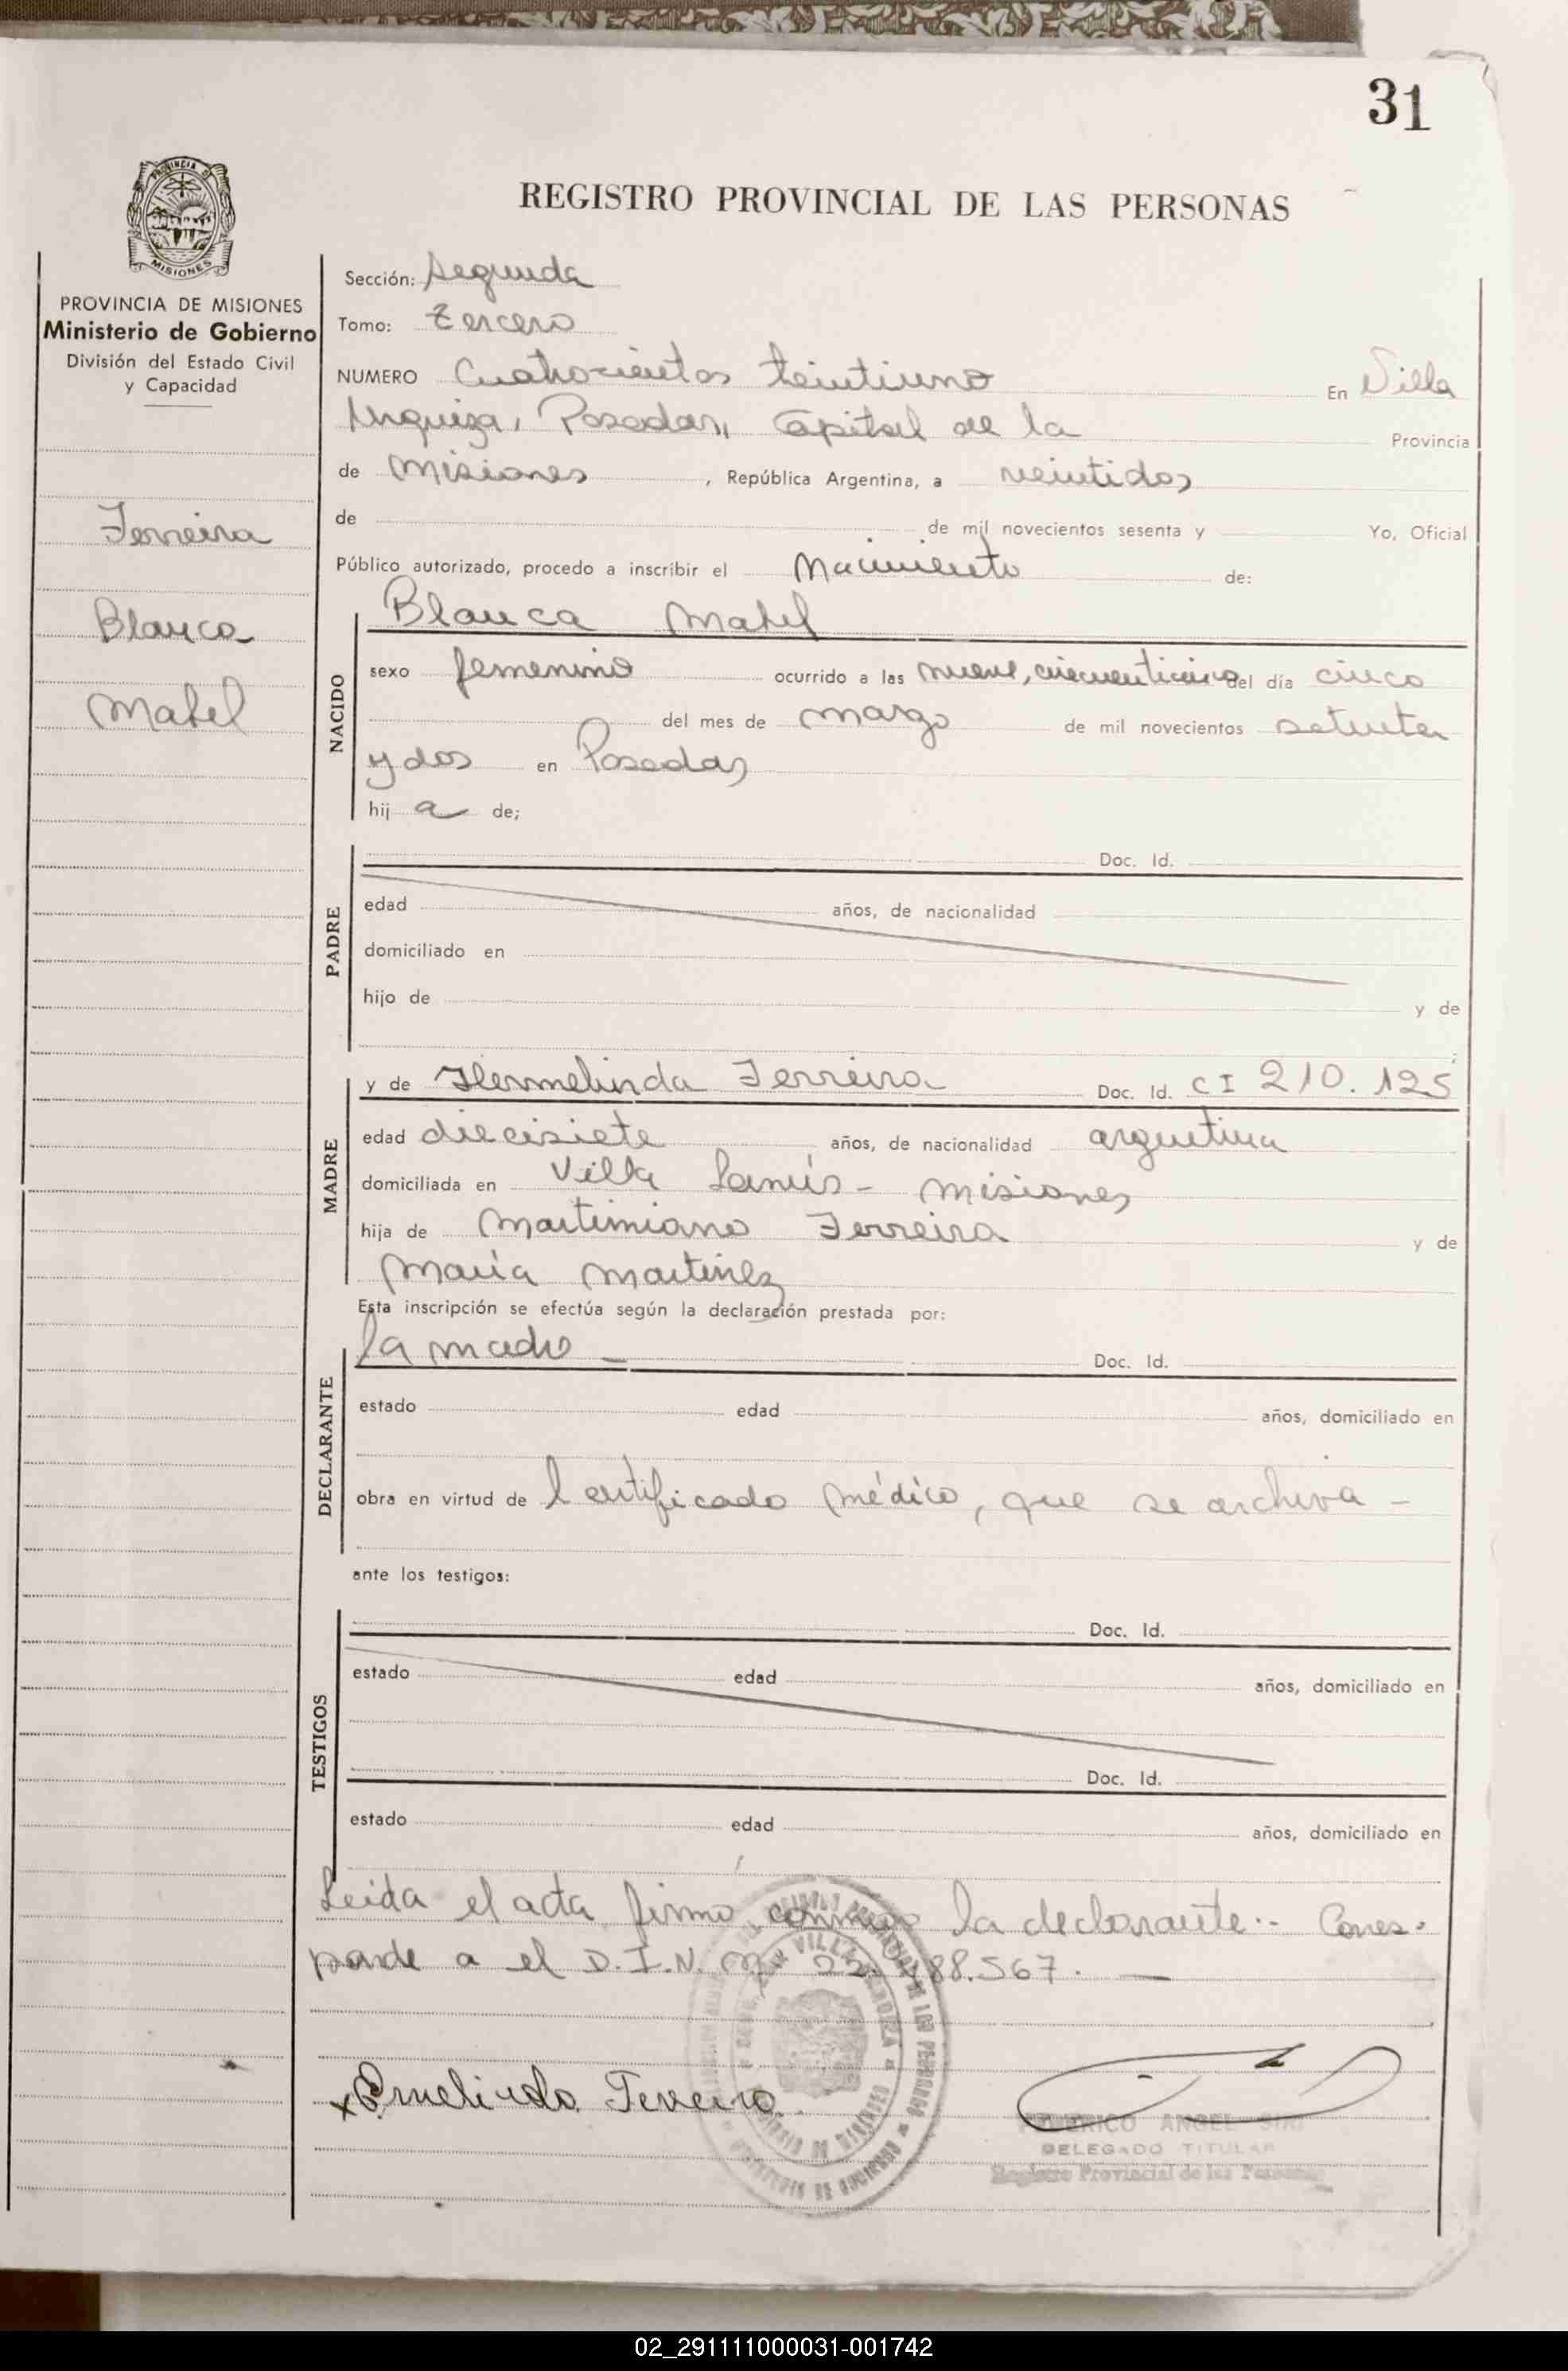 31
REGISTRO PROVINCIAL DE LAS PERSONAS
PROVINCIA DE
MISIONES
PROVINCIA DE MISIONES
Ministerio de Gobierno
División del Estado Civil
y Capacidad
Ferreira
Blanca
Mabel
Sección: Segunda
Tomo: Tercero
NUMERO Cuatrocientos treintiuno En Villa
Urquiza, Posadas, Capital de la Provincia
de Misiones, República Argentina, a veintidos
de de mil novecientos sesenta y Yo, Oficial
Público autorizado, procedo a inscribir el Nacimiento de:
Blanca Mabel
NACIDO
sexo femenino ocurrido a las nueve, cincuenticinco del día cinco
del mes de marzo de mil novecientos setenta
y dos en Posadas
hij a de;
PADRE
Doc. Id.
edad años, de nacionalidad
domiciliado en
hijo de y de
MADRE
y de Hermelinda Ferreira Doc. Id. CI 210.125
edad diecisiete años, de nacionalidad argentina
domiciliada en Villa Lanús - Misiones
hija de Martimiano Ferreira y de
María Martinez
Esta inscripción se efectúa según la declaración prestada por:
DECLARANTE
la madre Doc. Id.
estado edad años, domiciliado en
obra en virtud de l certificado médico, que se archiva -
ante los testigos:
TESTIGOS
Doc. Id.
estado edad años, domiciliado en
Doc. Id.
estado edad años, domiciliado en
Leida el acta, firmó conmigo la declarante.- Corres-
ponde a el D.I.N. 88.567. —
x Ermelinda Ferreira
ANGEL
DELEGADO TITULAR
Registro Provincial de las Personas
02_291111000031-001742